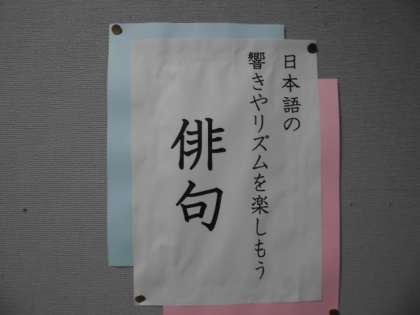 日本語の
響きやリズムを楽しもう
俳句